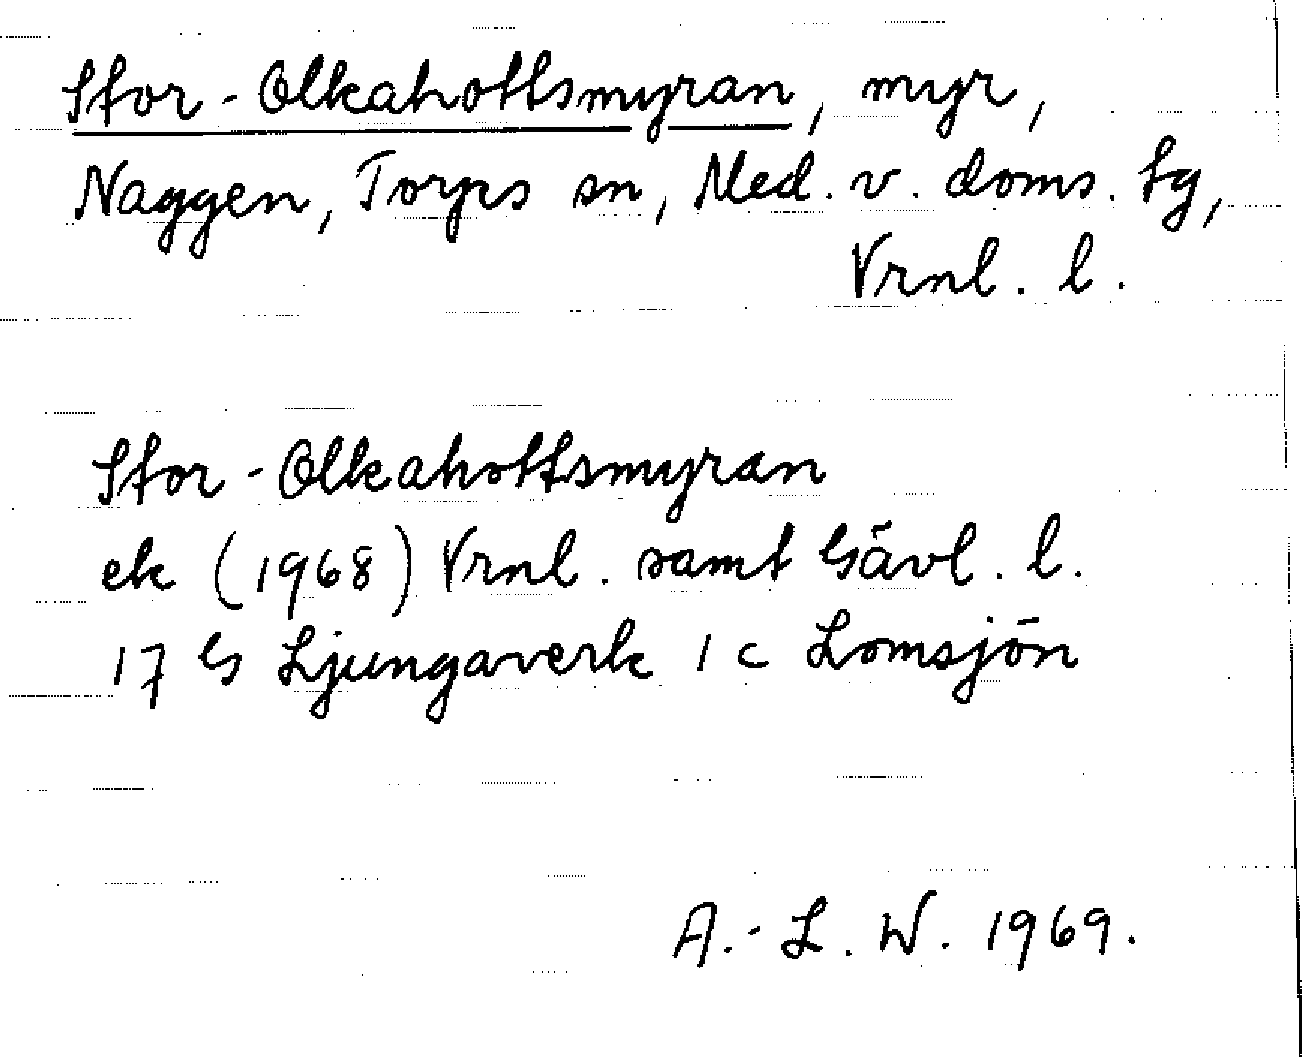 Stor-Olkahottsmyran, myr,
Naggen, Torps sn, Med. v. doms. tg,
Vrnl. l.
Stor-Olkahottsmyran
ek (1968) Vrnl. samt Gävl. l.
17 G Ljungaverk 1 c Lomsjön
A.-L. W. 1969.